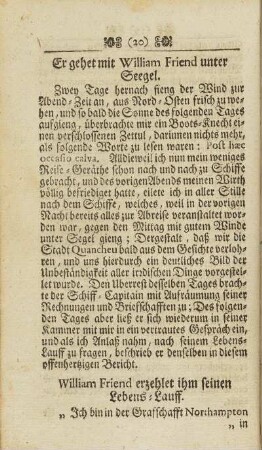 (20)
Er gehet mit William Friend unter
Seegel.
Zwey Tage hernach fieng der Wind zur
Abend-Zeit an, aus Nord-Osten frisch zu we-
hen, und so bald die Sonne des folgenden Tages
aufgieng, überbrachte mir ein Boots-Knecht ei-
nen verschlossenen Zettul, darinnen nichts mehr,
als folgende Worte zu lesen waren: Post hæc
occasio calva. Alldieweil ich nun mein weniges
Reise-Geräthe schon nach und nach zu Schiffe
gebracht, und des vorigen Abends meinen Wirth
völlig befriediget hatte, eilete ich in aller Stille
nach dem Schiffe, welches, weil in der vorigen
Nacht bereits alles zur Abreise veranstaltet wor-
den war, gegen den Mittag mit gutem Winde
unter Segel gieng; Dergestalt, daß wir die
Stadt Quancheu bald aus dem Gesicht verloh-
ren, und uns hierdurch ein deutliches Bild der
Unbeständigkeit aller irdischen Dinge vorgestel-
let wurde. Den Uberrest desselben Tages brach-
te der Schiff-Capitain mit Aufräumung seiner
Rechnungen und Briefschafften zu; Des folgen-
den Tages aber ließ er sich wiederum in seiner
Kammer mit mir in ein vertrautes Gespräch ein,
und als ich Anlaß nahm, nach seinem Lebens-
Lauff zu fragen, beschrieb er denselben in diesem
offenhertzigen Bericht.
William Friend erzehlet ihm seinen
Lebens-Lauff.
„ Ich bin in der Grafschafft Northampton
„ in